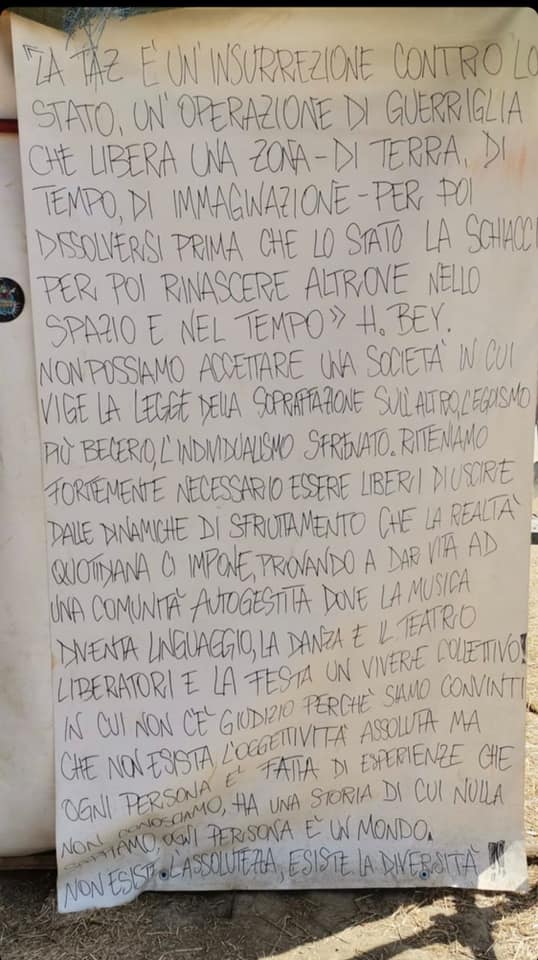 "LA TAZ E' UN'INSURREZIONE CONTRO LO
STATO, UN'OPERAZIONE DI GUERRIGLIA
CHE LIBERA UNA ZONA - DI TERRA, DI
TEMPO, DI IMMAGINAZIONE - PER POI
DISSOLVERSI PRIMA CHE LO STATO LA SCHIACCI
PER POI RINASCERE ALTROVE NELLO
SPAZIO E NEL TEMPO» H. BEY.
NON POSSIAMO ACCETTARE UNA SOCIETA' IN CUI
VIGE LA LEGGE DELLA SOPRAFFAZIONE SULL'ALTRO, L'EGOISMO
PIÙ BECERO, L'INDIVIDUALISMO SFRENATO. RITENIAMO
FORTEMENTE NECESSARIO ESSERE LIBERI DI USCIRE
DALLE DINAMICHE DI SFRUTTAMENTO CHE LA REALTA'
QUOTIDIANA CI IMPONE, PROVANDO A DAR VITA AD
UNA COMUNITA' AUTOGESTITA DOVE LA MUSICA
DIVENTA LINGUAGGIO, LA DANZA E IL TEATRO
LIBERATORI E LA FESTA UN VIVERE COLLETTIVO!
IN CUI NON C'E' GIUDIZIO PERCHE' SIAMO CONVINTI
CHE NON ESISTA L'OGGETTIVITA' ASSOLUTA MA
OGNI PERSONA E' FATTA DI ESPERIENZE CHE
NON CONOSCIAMO, HA UNA STORIA DI CUI NULLA
SAPPIAMO, OGNI PERSONA E' UN MONDO.
NON ESISTE L'ASSOLUTEZZA, ESISTE LA DIVERSITA'!!